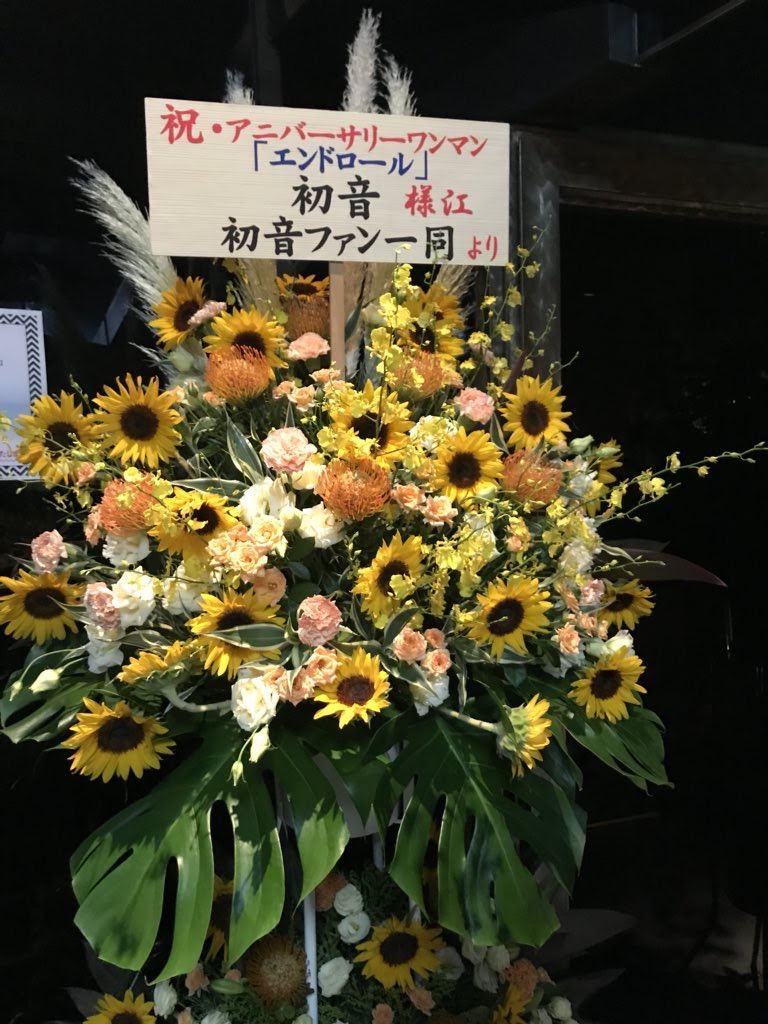 祝・アニバーサリーワンマン
「エンドロール」
初音 様江
初音ファン一同より